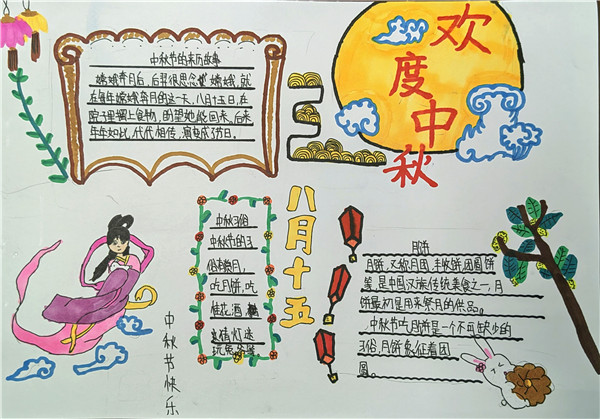 欢度中秋
中秋节的来历故事
嫦娥奔月后，后羿很思念嫦娥，就
在每年嫦娥奔月的这一天，八月十五日，在
院子里摆上食物，的望她能回来，后来
年年如此，代代相传，演变成了节日。
八月十五
中秋习俗
中秋节的习
俗有祭月、
吃月饼、吃
桂花酒、
猜灯迷
玩兔
月饼
月饼，又称月团、丰收饼、团圆饼
等，是中国汉族传统美食之一，月
饼最初是用来祭月的供品。
中秋节吃月饼是一个不可缺少的
习俗，月饼象征着团
圆。
中秋节快乐